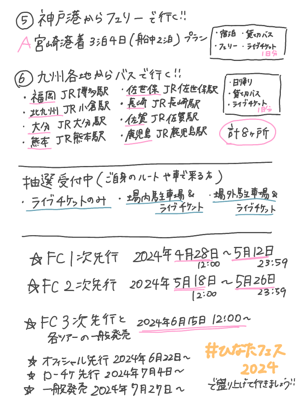 ⑤ 神戸港からフェリーで行く!!
A 宮崎港着 3泊4日(船中2泊)プラン
・宿泊 ・貸切バス
・フェリー ・ライブチケット
1日分
⑥ 九州各地からバスで行く!!
・福岡 JR博多駅 ・佐世保 JR佐世保駅
・北九州 JR小倉駅 ・長崎 JR長崎駅
・大分 JR大分駅 ・佐賀 JR佐賀駅
・熊本 JR熊本駅 ・鹿児島 JR鹿児島駅
・日帰り
・貸切バス
・ライブチケット
1日分
計8ヶ所
抽選受付中(ご自身のルートや車で来る方)
・ライブチケットのみ ・場内駐車場&ライブチケット ・場外駐車場&ライブチケット
☆FC1次先行 2024年4月28日〜5月12日
12:00 23:59
☆FC2次先行 2024年5月18日〜5月26日
12:00 23:59
☆FC3次先行と 2024年6月15日 12:00〜
各ツアーの一般発売
☆オフィシャル先行 2024年6月22日〜
☆ローチケ先行 2024年7月4日〜
☆一般発売 2024年7月27日〜
#ひなたフェス
2024
で盛り上げて行きましょう!!